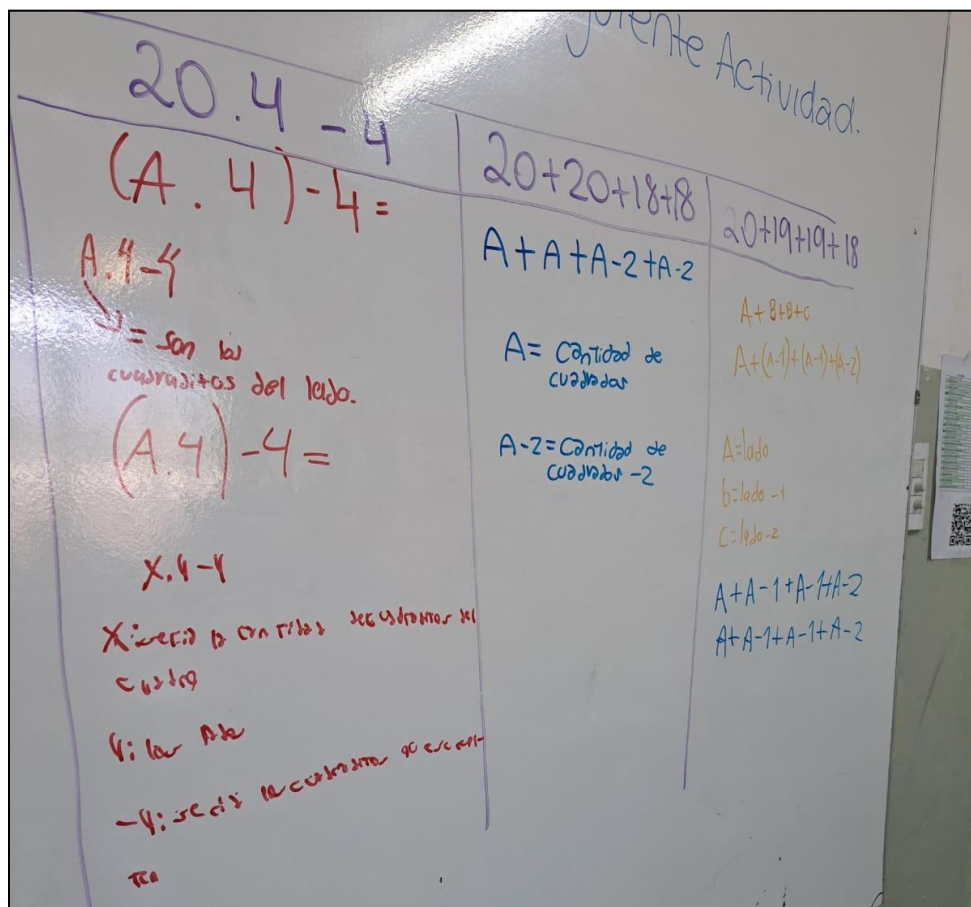 guiente Actividad.
20.4 - 4
(A. 4) - 4 =
A.4-4
= son los
cuadraditos del lado.
(A.4) - 4 =
X.4-4
X: seria la cantidad
cuadro
4: los
-4: seria
20+20+18+18
A+A+A-2+A-2
A= Cantidad de
cuadrados
A-2= Cantidad de
cuadrados -2
20+19+19+18
A+B+B+C
A+(A-1)+(A-1)+(A-2)
A=lado
b=lado -1
C=lado-2
A+A-1+A-1+A-2
A+A-1+A-1+A-2